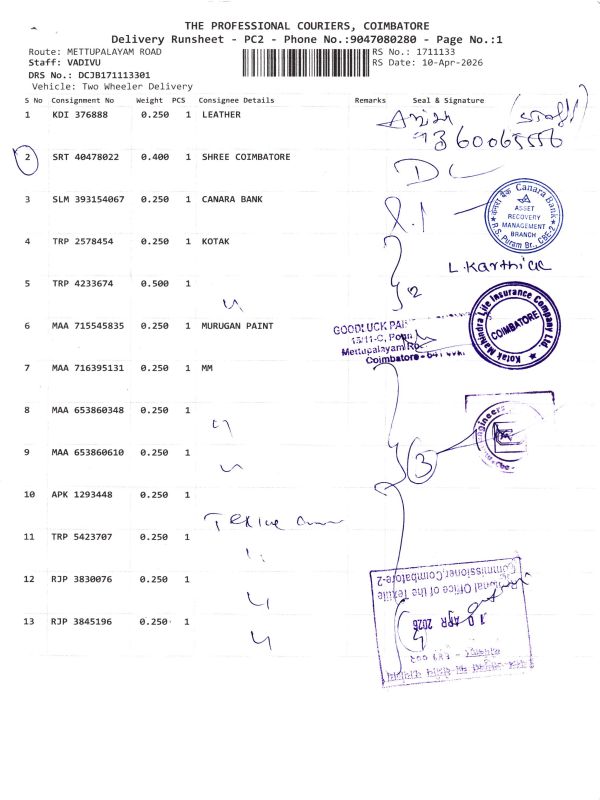 THE PROFESSIONAL COURIERS, COIMBATORE
Delivery Runsheet - PC2 - Phone No.:9047080280 - Page No.:1
Route: METTUPALAYAM ROAD
RS No.: 1711133
Staff: VADIVU
RS Date: 10-Apr-2026
DRS No.: DCJB171113301
Vehicle: Two Wheeler Delivery
S No Consignment No Weight PCS Consignee Details Remarks Seal & Signature
1 KDI 376888 0.250 1 LEATHER
(Staff)
2 SRT 40478022 0.400 1 SHREE COIMBATORE
DC
3 SLM 393154067 0.250 1 CANARA BANK
Canara Bank
ASSET
RECOVERY
MANAGEMENT
BRANCH
R.S. Puram Br., CBE-2
4 TRP 2578454 0.250 1 KOTAK
L.Karthick
5 TRP 4233674 0.500 1
2
Kotak Mahindra Life Insurance Company Ltd.
COIMBATORE
6 MAA 715545835 0.250 1 MURUGAN PAINT
GOODLUCK
15/11-C,
Mettupalayam
Coimbatore
7 MAA 716395131 0.250 1 MM
8 MAA 653860348 0.250 1
Engineers
9 MAA 653860610 0.250 1
3
10 APK 1293448 0.250 1
11 TRP 5423707 0.250 1
12 RJP 3830076 0.250 1
13 RJP 3845196 0.250 1
Office of the Textile
Commissioner, Coimbatore-2
10 APR 2026